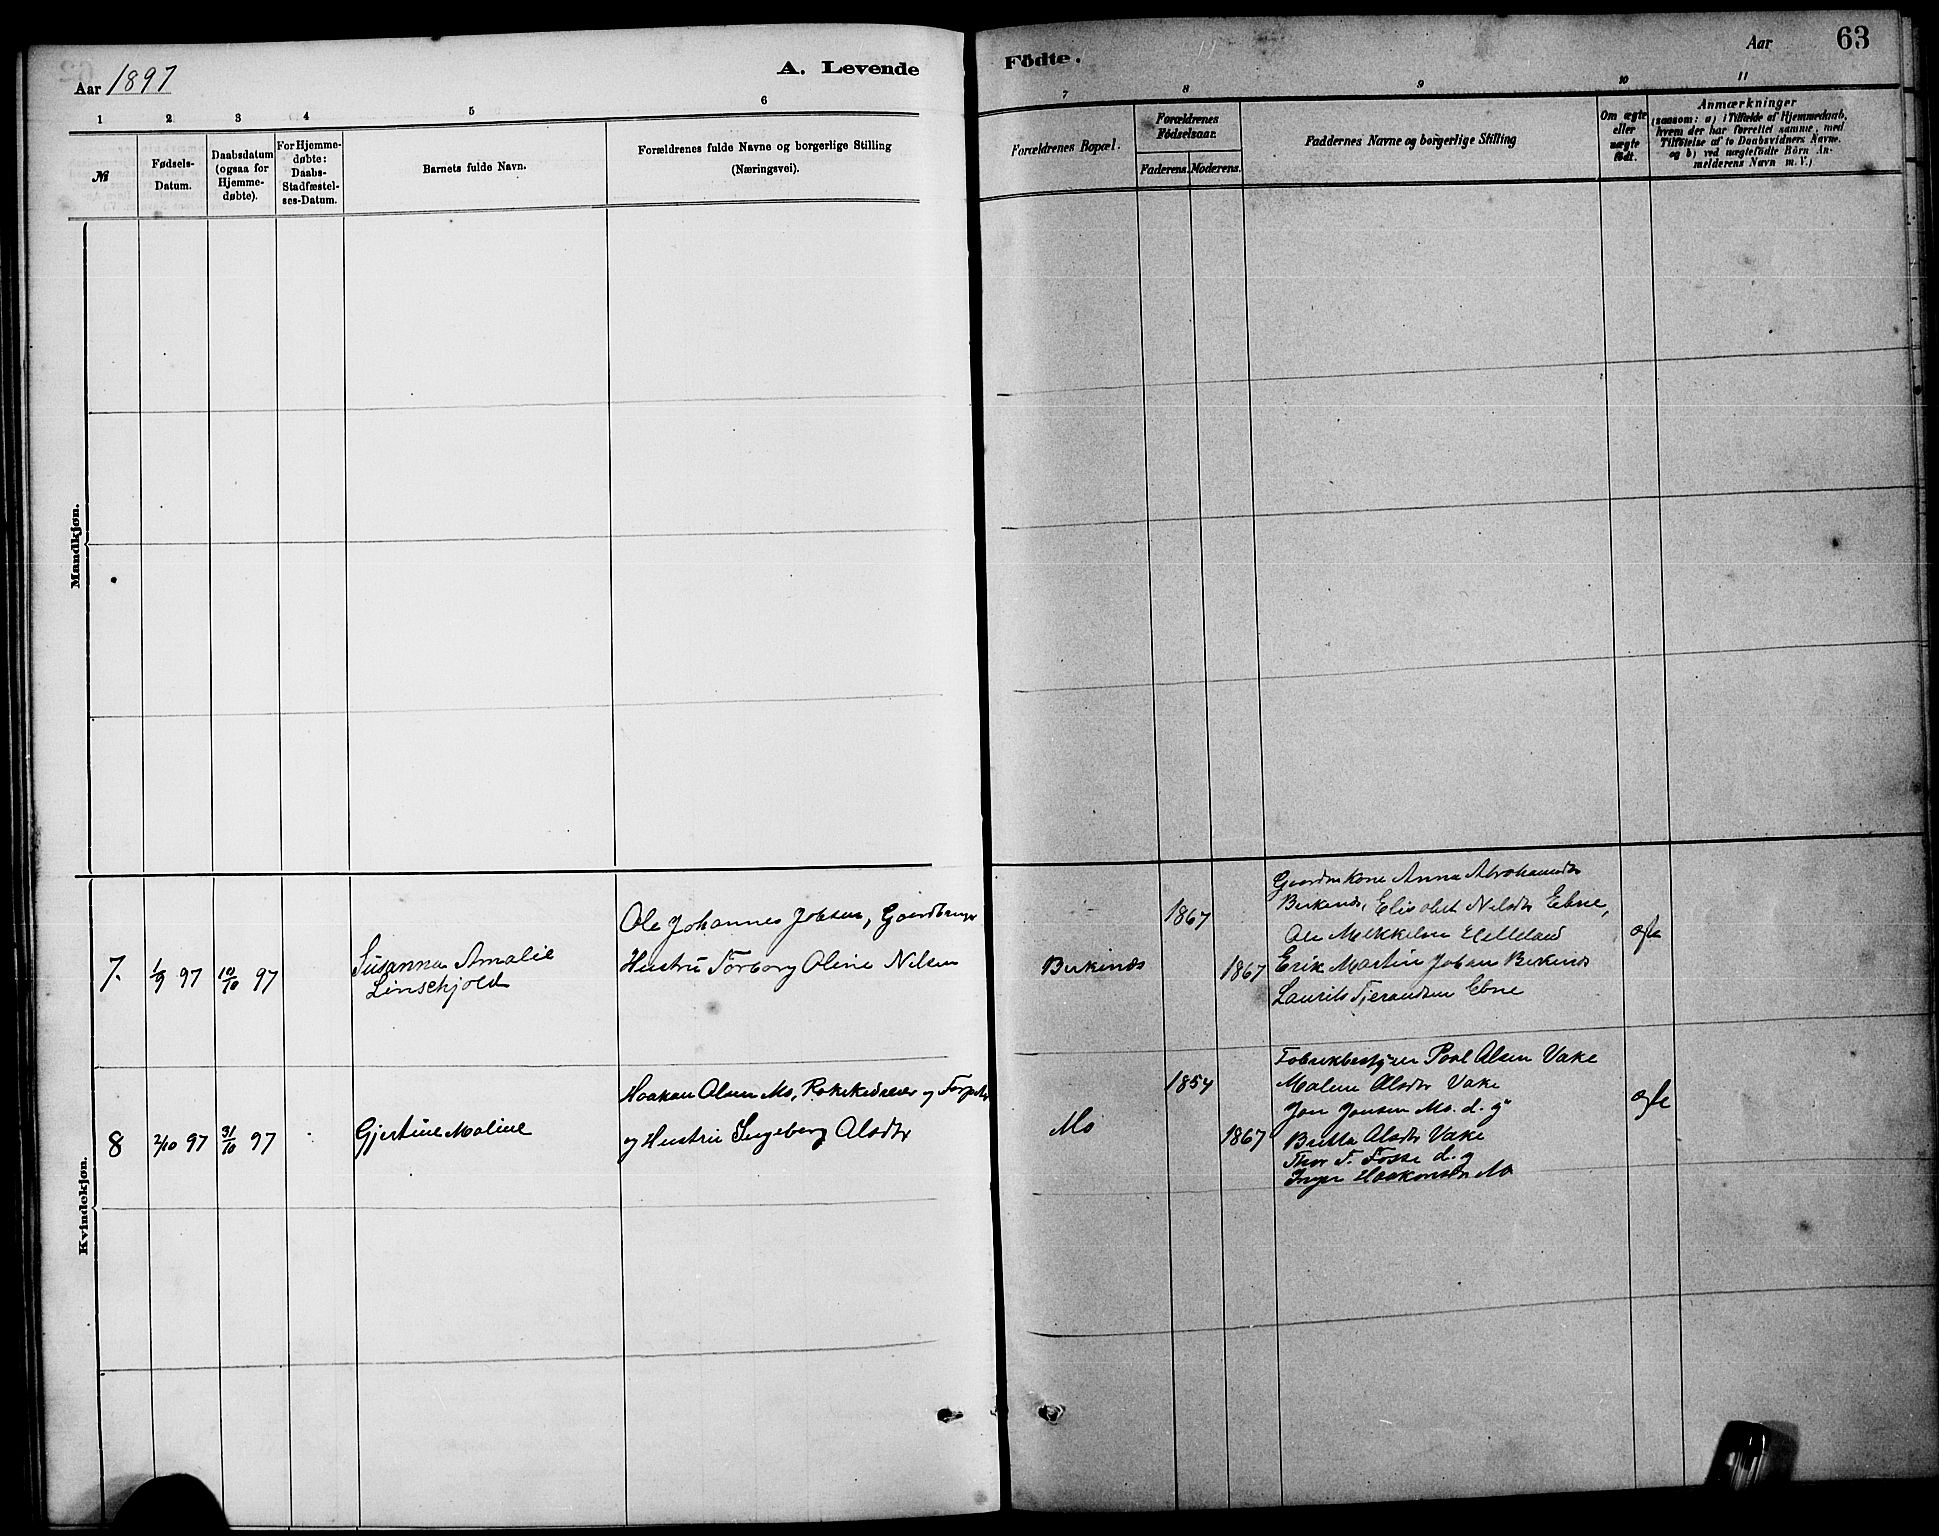 Aar 1897
A. Levende
Födte.
Aar
63
1 2 3 4 5 6
7 8 9 10 11
№
Fødsels-
Datum.
Daabsdatum
(ogsaa for
Hjemme-
døbte).
For Hjemme-
døbte:
Daabs-
Stadfæstel-
ses-Datum.
Barnets fulde Navn.
Forældrenes fulde Navne og borgerlige Stilling
(Næringsvei).
Forældrenes Bopæl.
Forældrenes
Födselsaar.
Faderens. Moderens.
Faddernes Navne og borgerlige Stilling
Om ægte
eller
uægte
født.
Anmærkninger
(saasom: a) i Tilfælde af Hjemmedaab,
hvem der har forrettet samme, med
Tilföielse af to Daabsvidners Navne.
og b) ved uægtefödte Börn An-
melderens Navn m. V.)
Mandkjøn.
Kvindekjøn.
7. 1/9 97 10/10 97
Susanna Amalie
Linschjold
Ole Johannes Jobsen,
Hustru Torborg Oline Nilsen
Birkenæs
1867
1867
Gaardmkone Anna Abrahamsdtr
Birkenæs, Elisabet Nilsdtr Ebne,
Ole Mekkelsen Helleland
Erik Martin Jobsen Birkenæs
Laurits Tjerandsen Ebne
ægte
8 2/10 97 31/10 97
Gjertine Maline
Haakan Olsen Mo,
og Hustru Ingeborg Olsdtr
Mo
1854
1867
Fabrikbestyrer Poul Olsen Vake
Malene Olsdtr Vake
Jon Jonsen Mo. d. g
Britta Olsdtr Vake
Thor T. Fosse d. g
Inger Haakonsdtr Mo
ægte